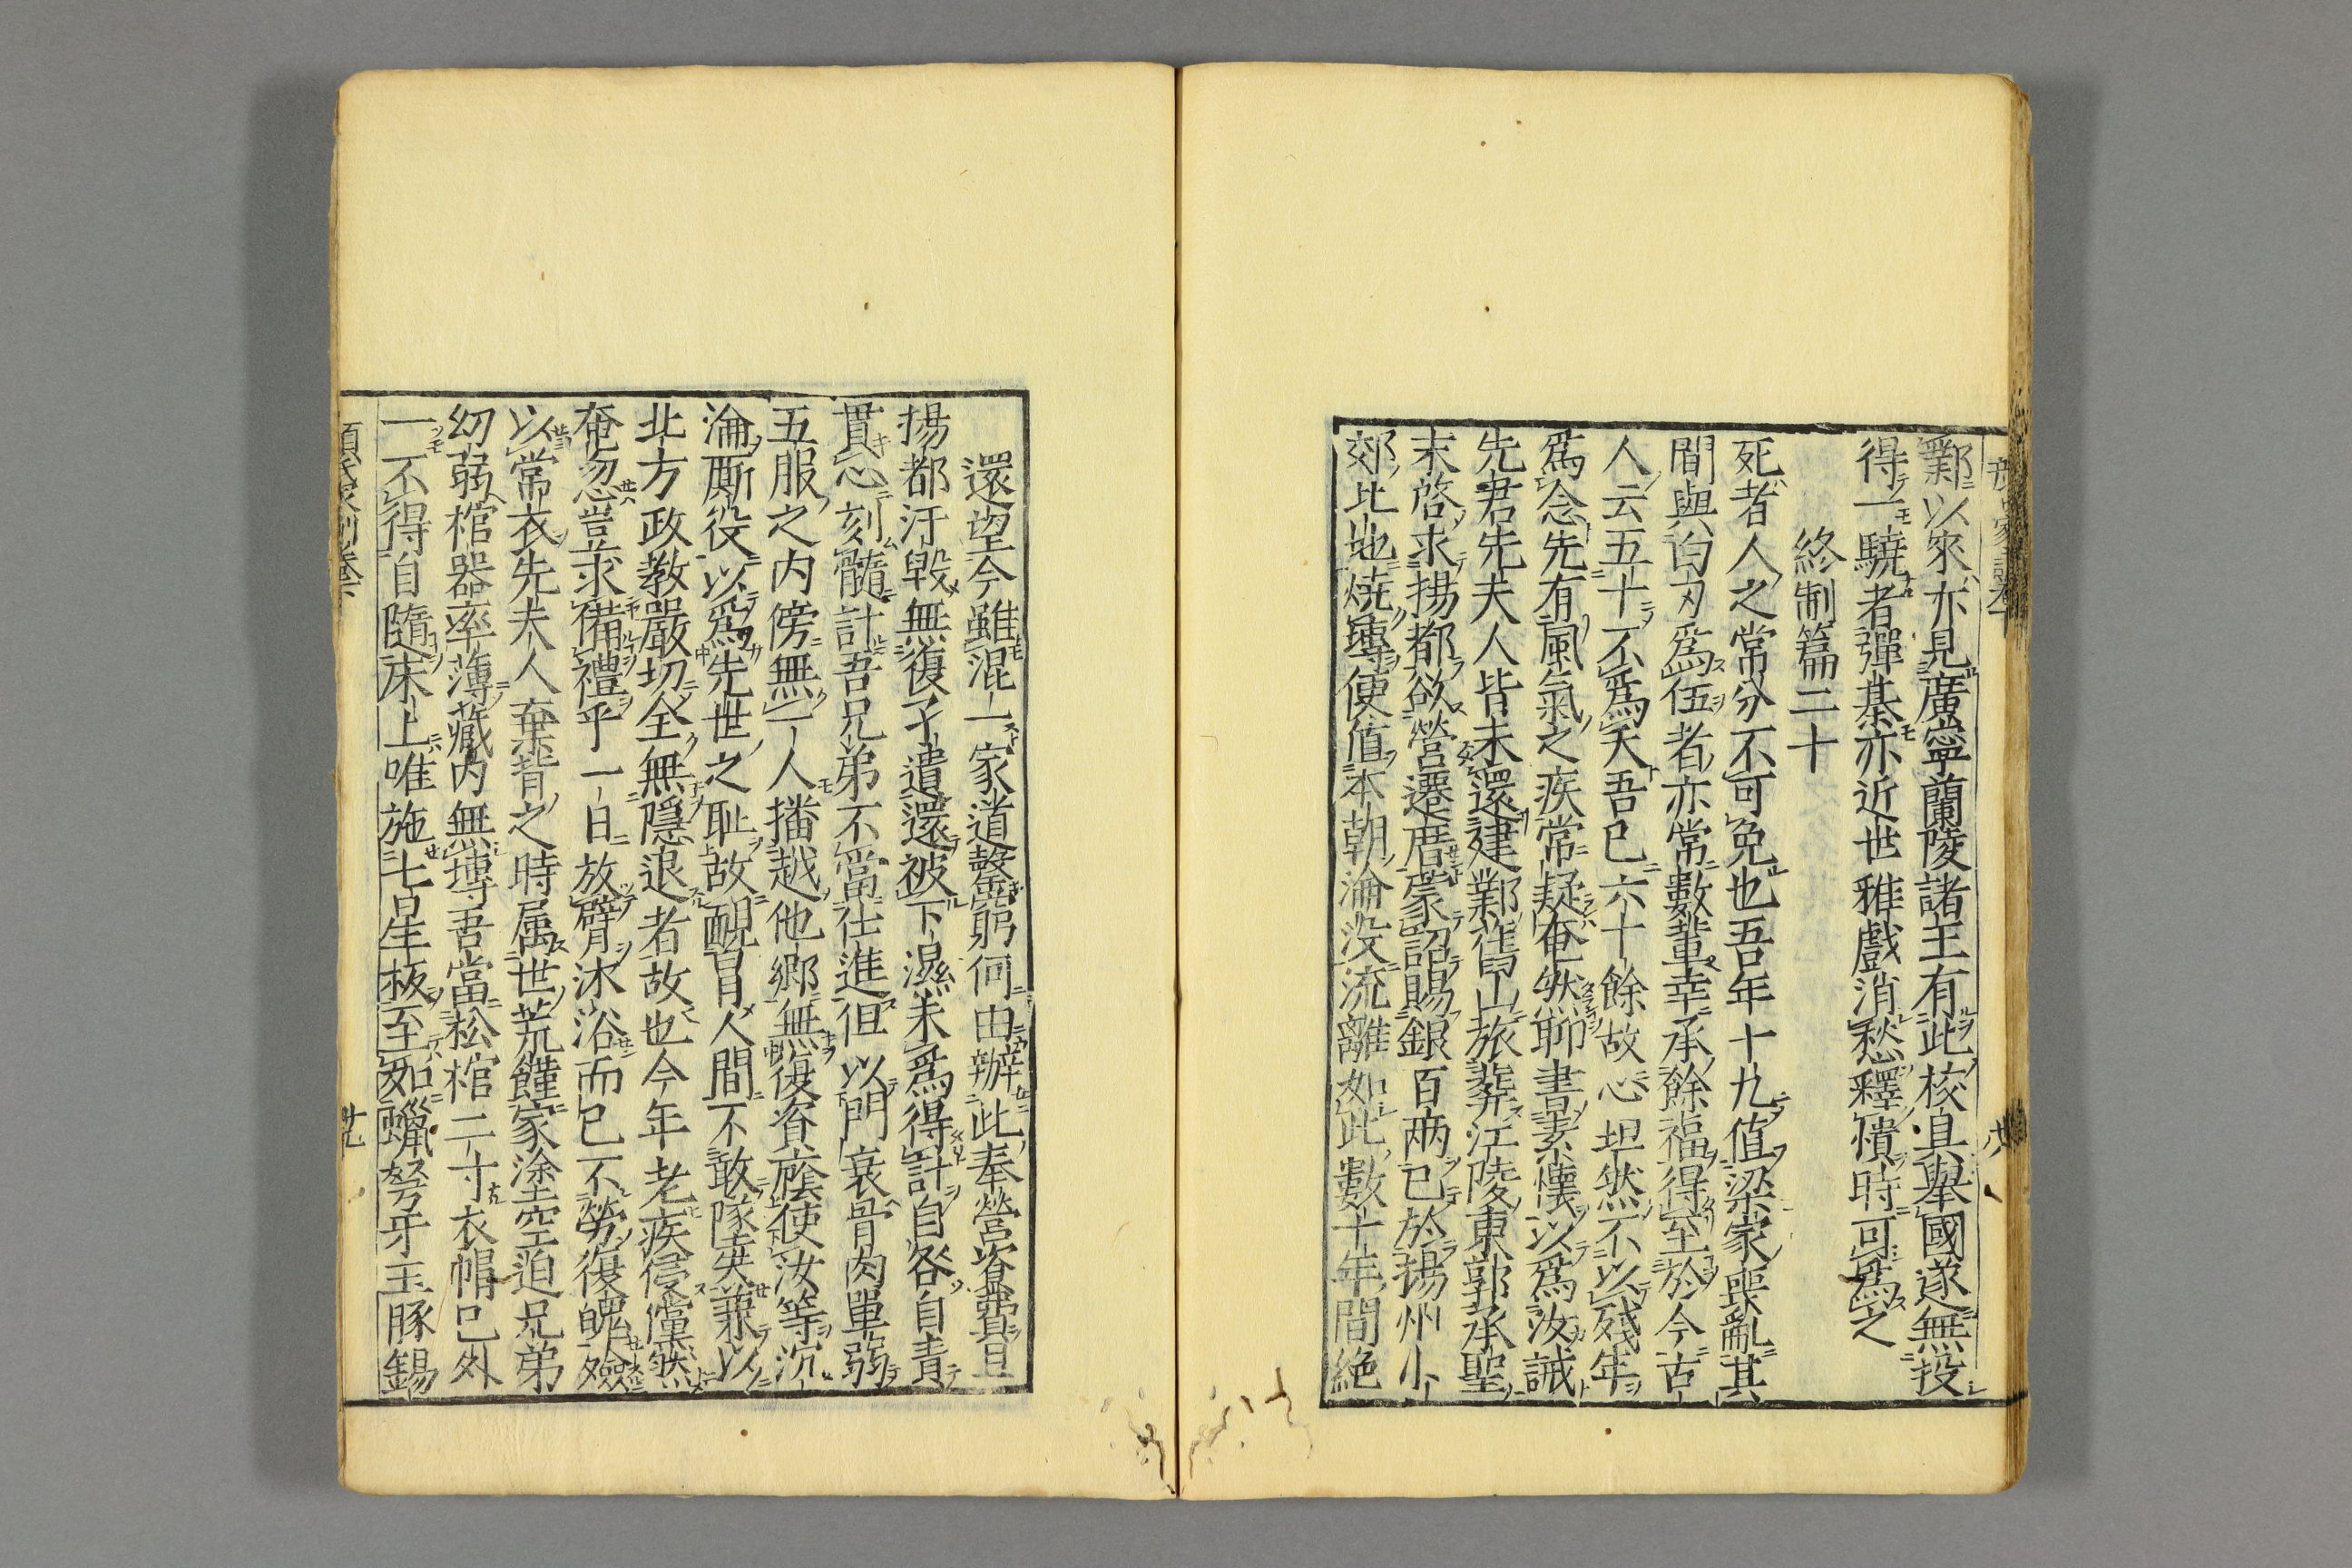 鄴以來亦見廣寧蘭陵諸王有此校具舉國遂無投
得一驍者彈棊亦近世雅戲消愁釋憒時可爲之
終制篇二十
死者人之常分不可免也吾年十九值梁家喪亂其
間與白刃爲伍者亦常數輩幸承餘福得至於今古
人云五十不爲夭吾已六十餘故心坦然不以殘年
爲念先有風氣之疾常疑奄然聊書素懷以爲汝誡
先君先夫人皆未還建鄴舊山旅葬江陵東郭承聖
末啓求揚都欲營遷厝蒙詔賜銀百兩已於揚州小
郊北地燒塼便值本朝淪沒流離如此數十年間絕
還望今雖混一家道罄窮何由辦此奉營資費且
揚都汙毀無復孑遺還被下濕未爲得計自咎自責
貫心刻髓計吾兄弟不當仕進但以門衰骨肉單弱
五服之內傍無一人播越他鄉無復資廕使汝等沉
淪厮役以爲先世之耻故靦冒人間不敢隊失兼以
北方政教嚴切全無隱退者故也今年老疾侵儻然
奄忽豈求備禮乎一日放臂沐浴而已不勞復魄殮
以常衣先夫人棄背之時属世荒饉家塗空迫兄弟
幼弱棺器率薄藏內無塼吾當松棺二寸衣帽已外
一不得自隨床上唯施七星板至如蠟弩牙玉豚錫
顔氏家訓卷下
廿九